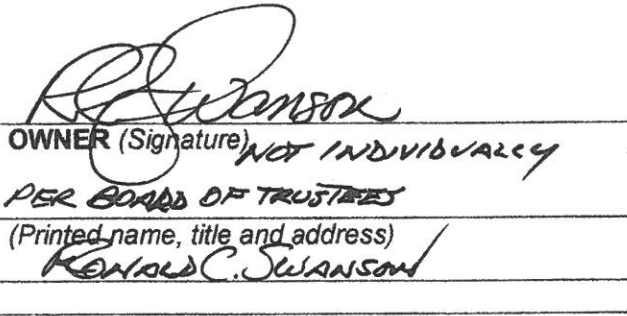 RC Swanson
OWNER (Signature) NOT INDIVIDUALLY
PER BOARD OF TRUSTEES
(Printed name, title and address)
RONALD C. SWANSON